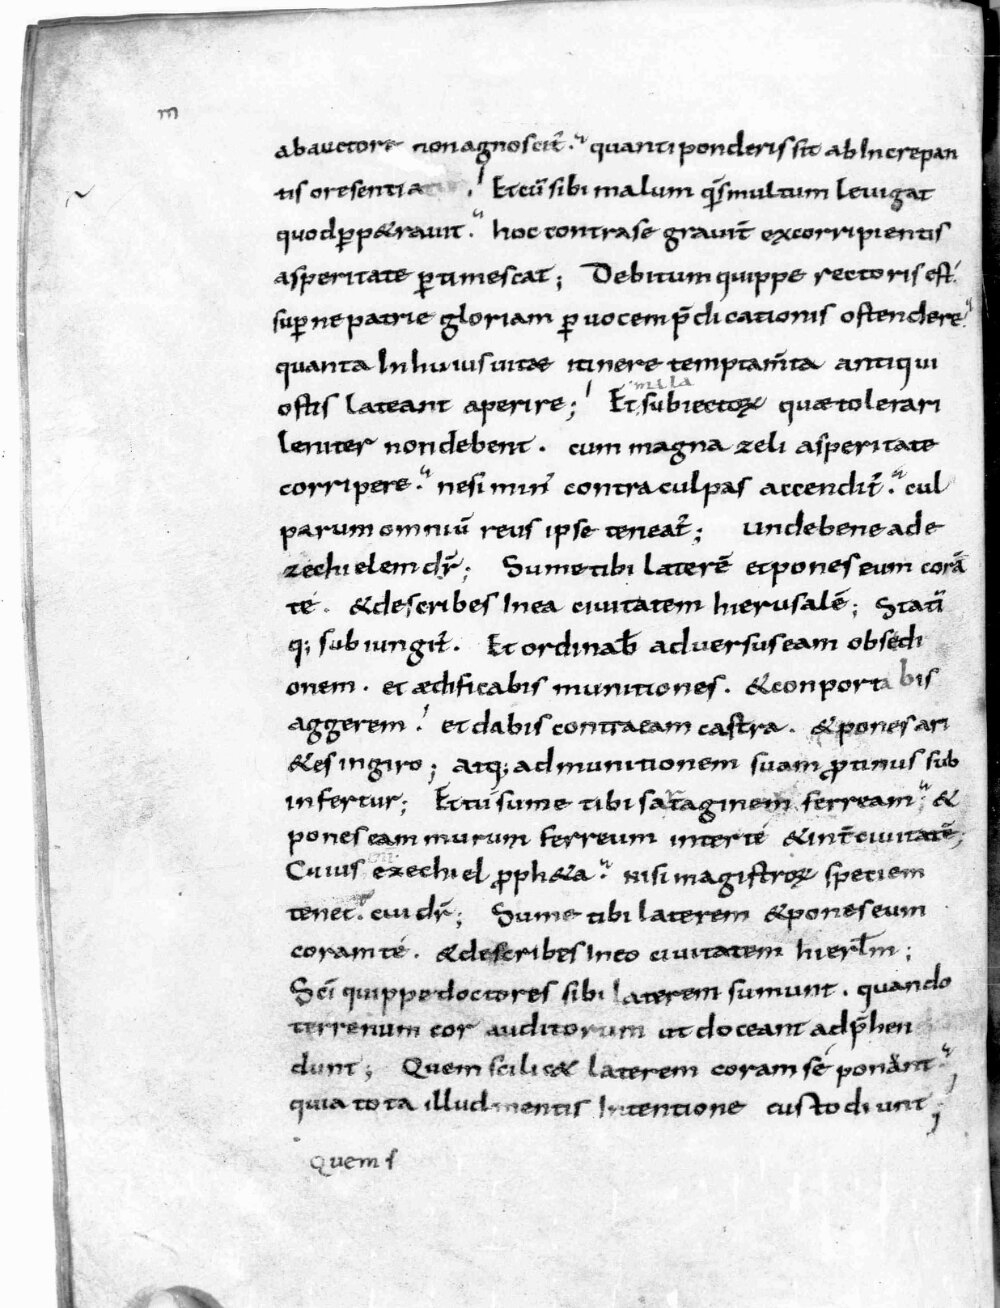 m
abauctore non agnoscit̅. quanti ponderis sit ab Increpan
tis ore sentiatur. Et cu̅ sibi malum q̅s multum leuigat
quod ꝑp&rauit. hoc contra se grauit̅ ex corripientis
asperitate ꝑtimescat; Debitum quippe rectoris est.
suꝑne patrie gloriam ꝑ uocem p̅dicationis ostendere.
quanta In huius uitae itinere temptam̅ta antiqui
ostis lateant aperire; Et subiectoꝝ mala quae tolerari
leniter non debent. cum magna zeli asperitate
corripere. ne si min' contra culpas accendit̅. cul
parum omniu̅ reus ipse teneat̅; unde bene ad e
zechielem dr̅; Sume tibi latere̅ et pones eum cora̅
té. & describes In ea ciuitatem hierusale̅; Stati̅
q; subiungit̅. Et ordinab̅ aduersus eam obsedi
onem. et ædificabis munitiones. & conportabis
aggerem. et dabis contra eam castra. & pones ari
&es in giro; atq; ad munitionem suam ꝓtinus sub
infertur; Et tu̅ sume tibi sartaginem ferream. &
pones eam murum ferreum inter té & int̅ ciuitate̅;
Cuius ezechiel ꝓph&a. nisi magistroꝝ speciem
tenet. cui dr̅; Sume tibi laterem & pones eum
coram té. & describes In eo ciuitatem hierl̅m;
Sc̅i quippe doctores sibi laterem sumunt. quando
terrenum cor auditorum ut doceant adp̅hen
dunt; Quem scilic& laterem coram sé ponunt
quia tota illud mentis Intentione custodiunt;
Quem s